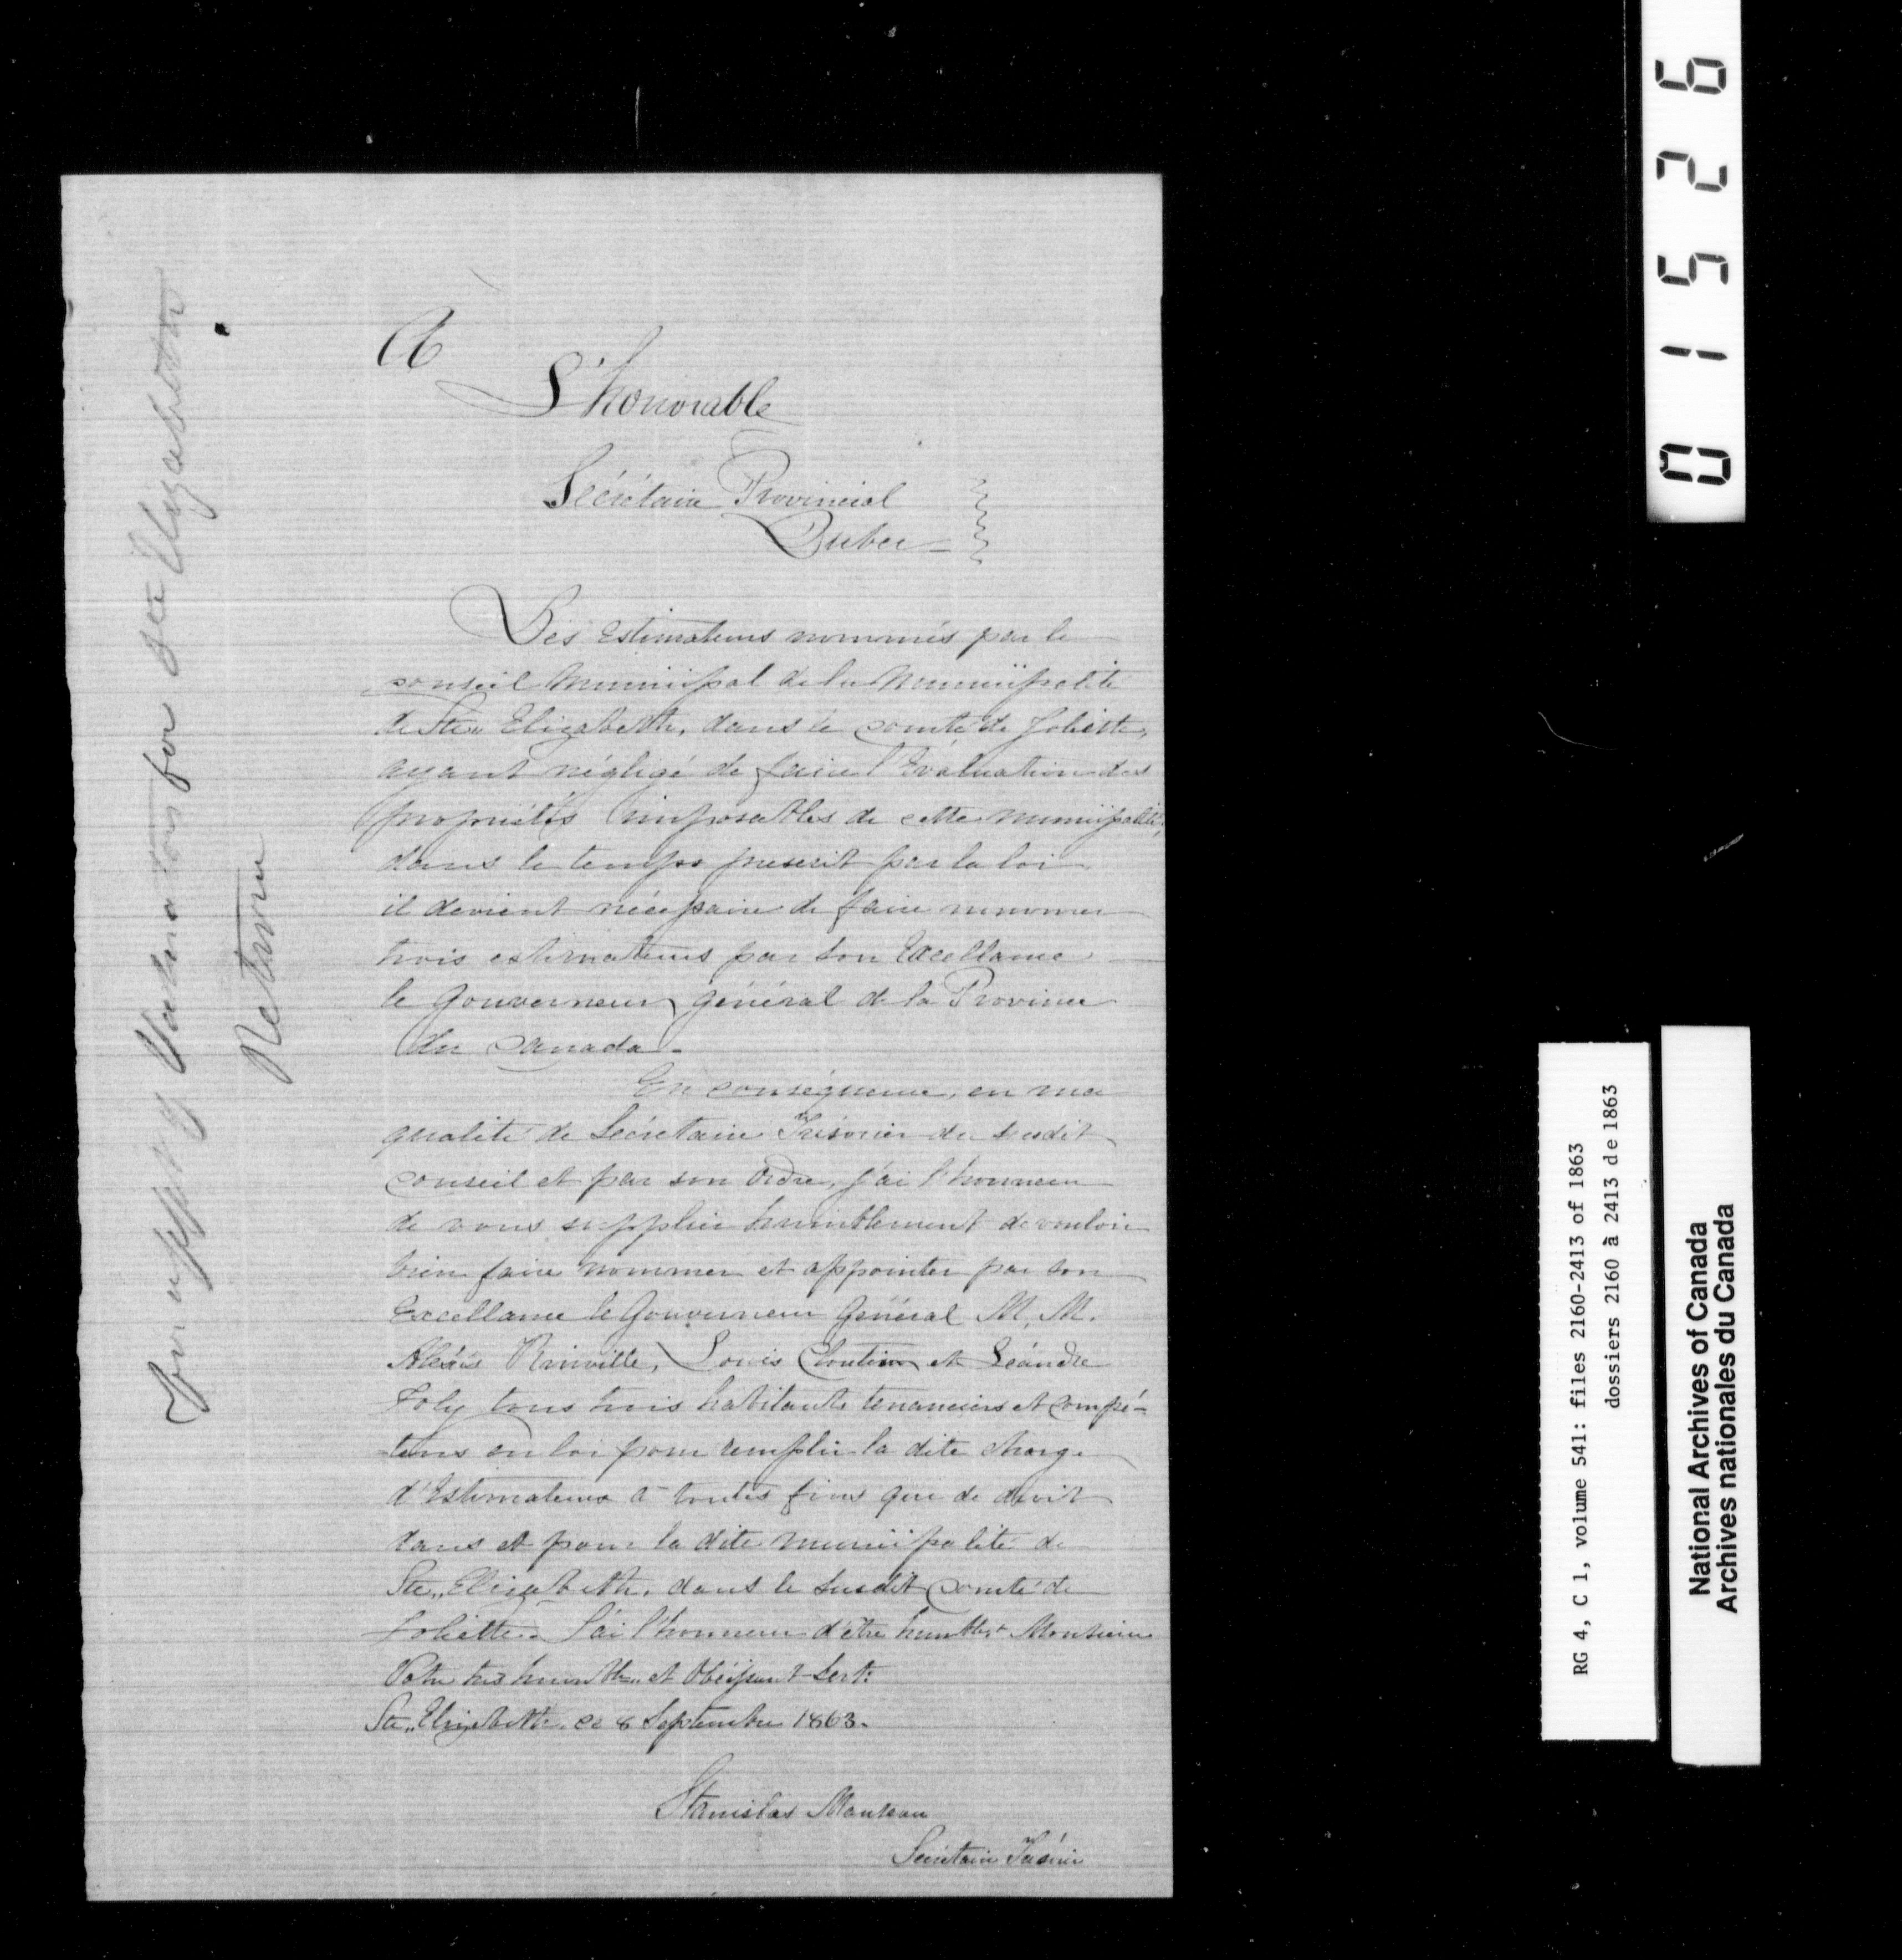 A
L'honorable
Sécrétaire Provincial
Quebec
Les Estimateurs nommés par le
conseil Municipal de la Municipalité
de Ste,, Elizabeth, dans le comté de Joliette,
ayant négligé de faire l'Évaluation des
propriétés imposables de cette municipalité,
dans le temps prescrit par la loi
il devient nécessaire de faire nommer
trois estimateurs par son Excellance
le Gouverneur général de la Province
du Canada.
En conséquence, en ma
qualité de Sécretaire Trésorier du susdit
conseil et par son Ordre, j'ai l'honneur
de vous supplier humblement de vouloir
bien faire nommer et appointer par son
Excellance le Gouverneur Général M. M.
Alexis Rinville, Louis Cloutier et Léandre
Joly tous trois habitants tenanciers et compé-
-tens en loi pour remplir la dite charge
d'Estimateurs à toutes fins que de droit
dans et pour la dite municipalité de
Ste,, Elizabeth, dans le susdit comté de
Joliette. J'ai l'honneur d'être Monsieur
Votre très humble et Obéissant Sert.
Ste,, Elizabeth, ce 8 Septembre 1863.
Stanislas
Secretaire Trésorier
for Ste Elizabeth
Return
0 1 5 2 6
RG 4, C 1, volume 541: files 2160-2413 of 1863
dossiers 2160 à 2413 de 1863
National Archives of Canada
Archives nationales du Canada